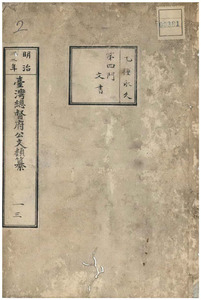 乙種永久
第四門
文書
明治
年
臺灣總督府公文類纂
一三
2